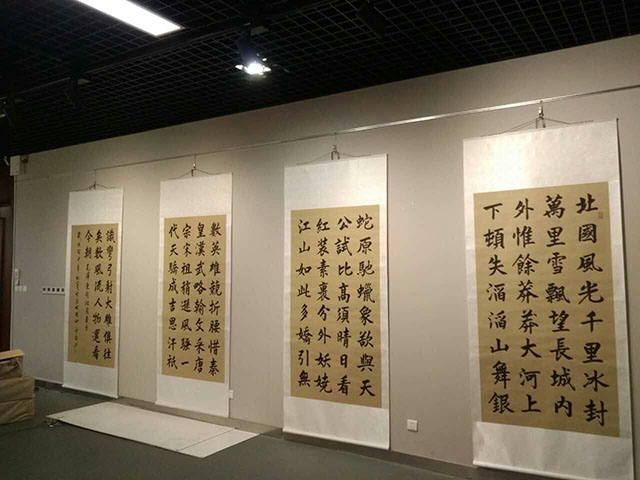 北國風光千里冰封
萬里雪飄望長城內
外惟餘莽莽大河上
下頓失滔滔山舞銀
蛇原馳蠟象欲與天
公試比高須晴日看
紅裝素裹分外妖嬈
江山如此多嬌引無
數英雄競折腰惜秦
皇漢武略輸文采唐
宗宋祖稍遜風騷一
代天驕成吉思汗祇
識彎弓射大雕俱往
矣數風流人物還看
今朝